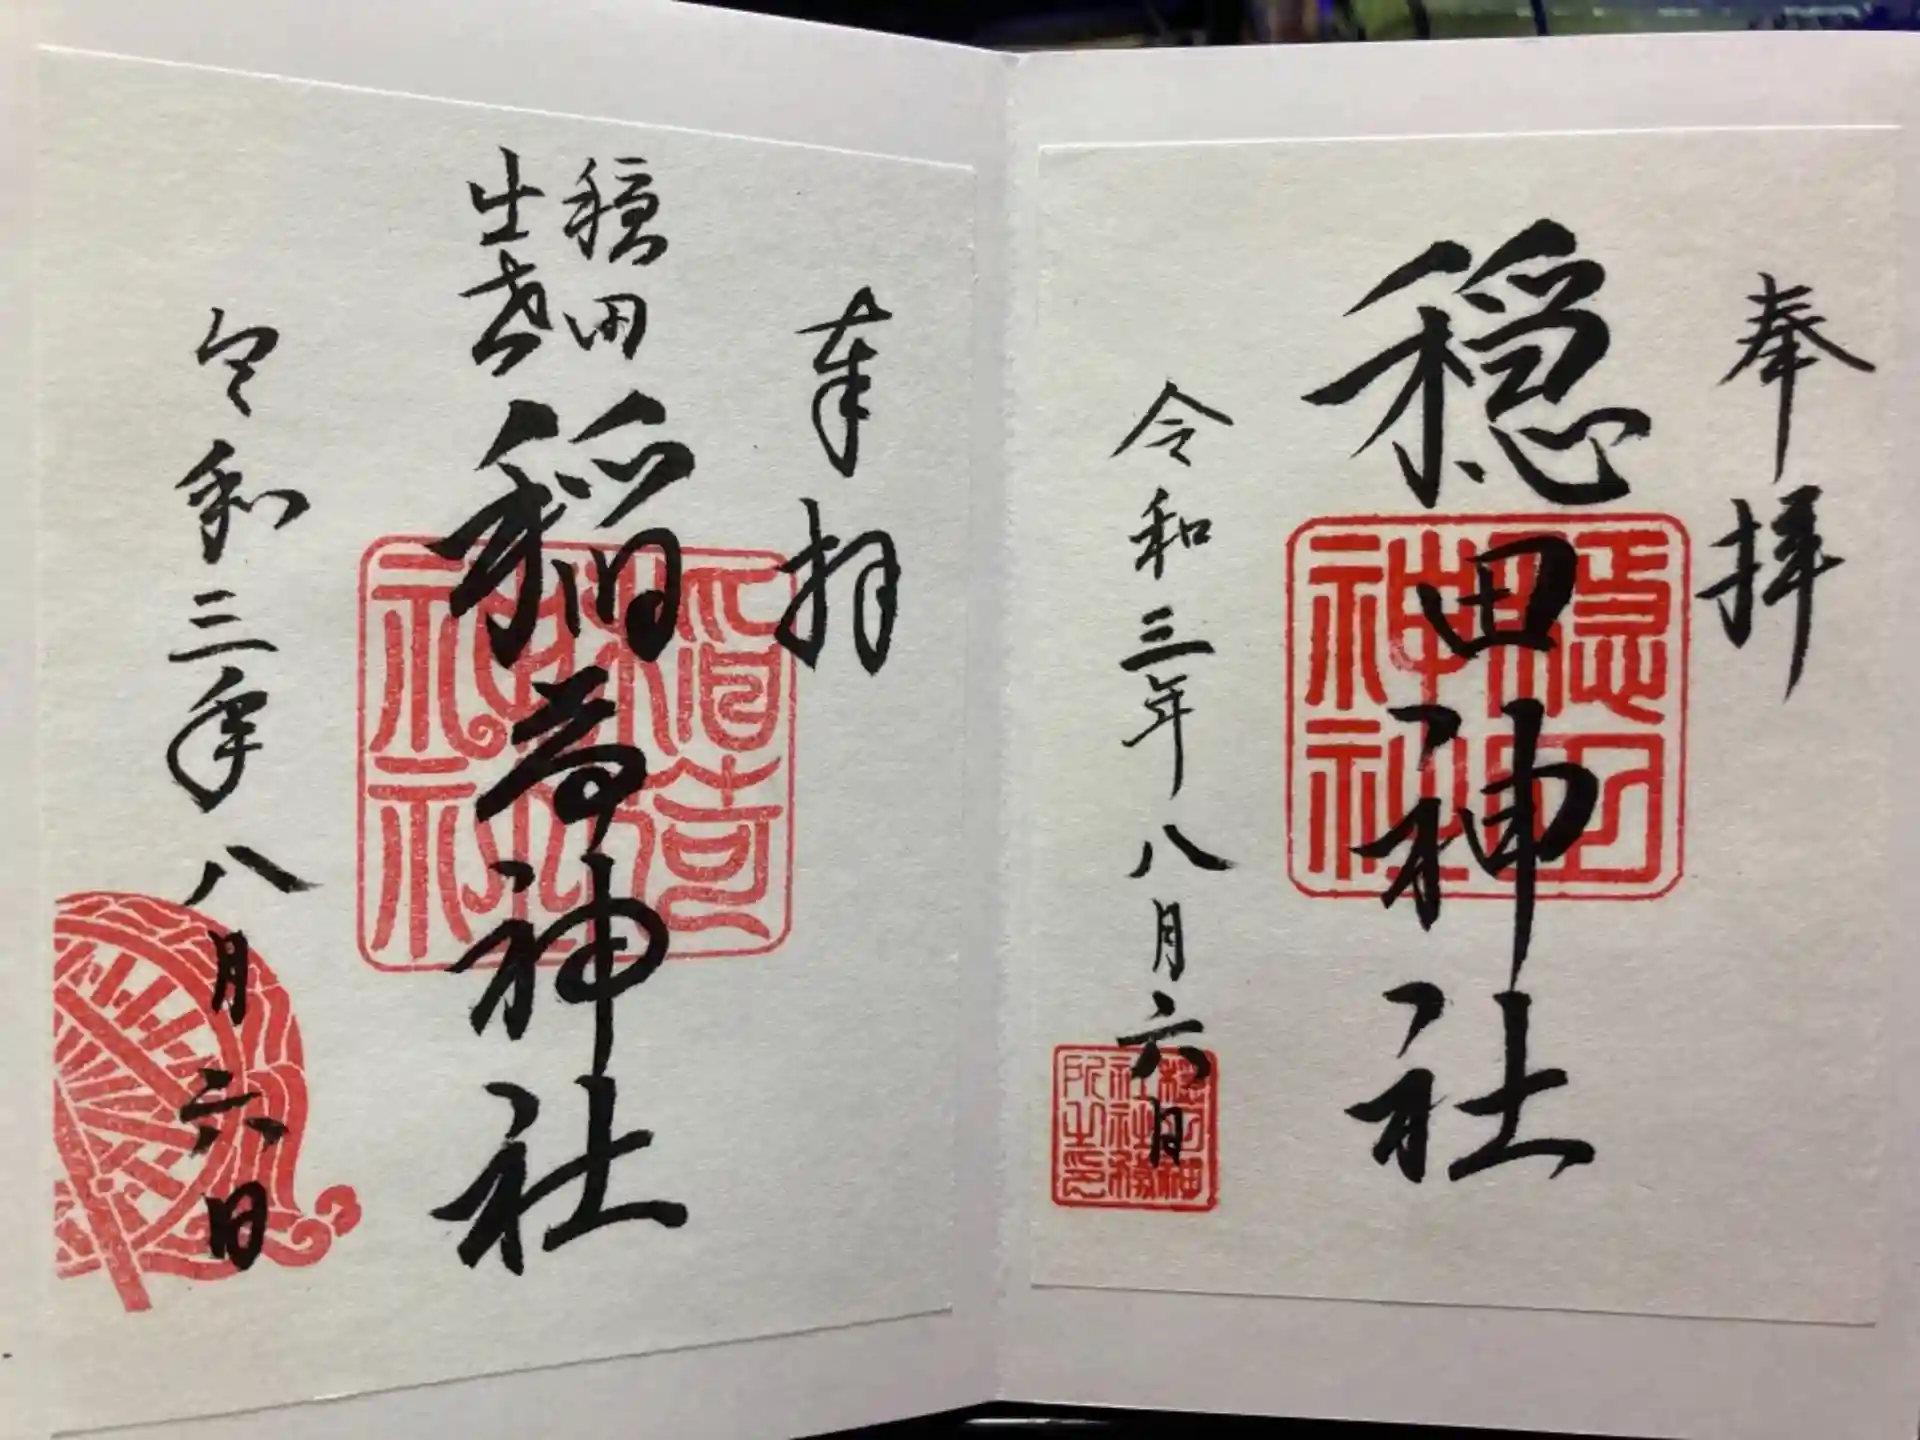 奉拝
穏田神社
令和三年八月六日
穏田神社
穏田神社社務所之印
奉拝
穏田
出世
稲荷神社
令和三年八月六日
稲荷神社